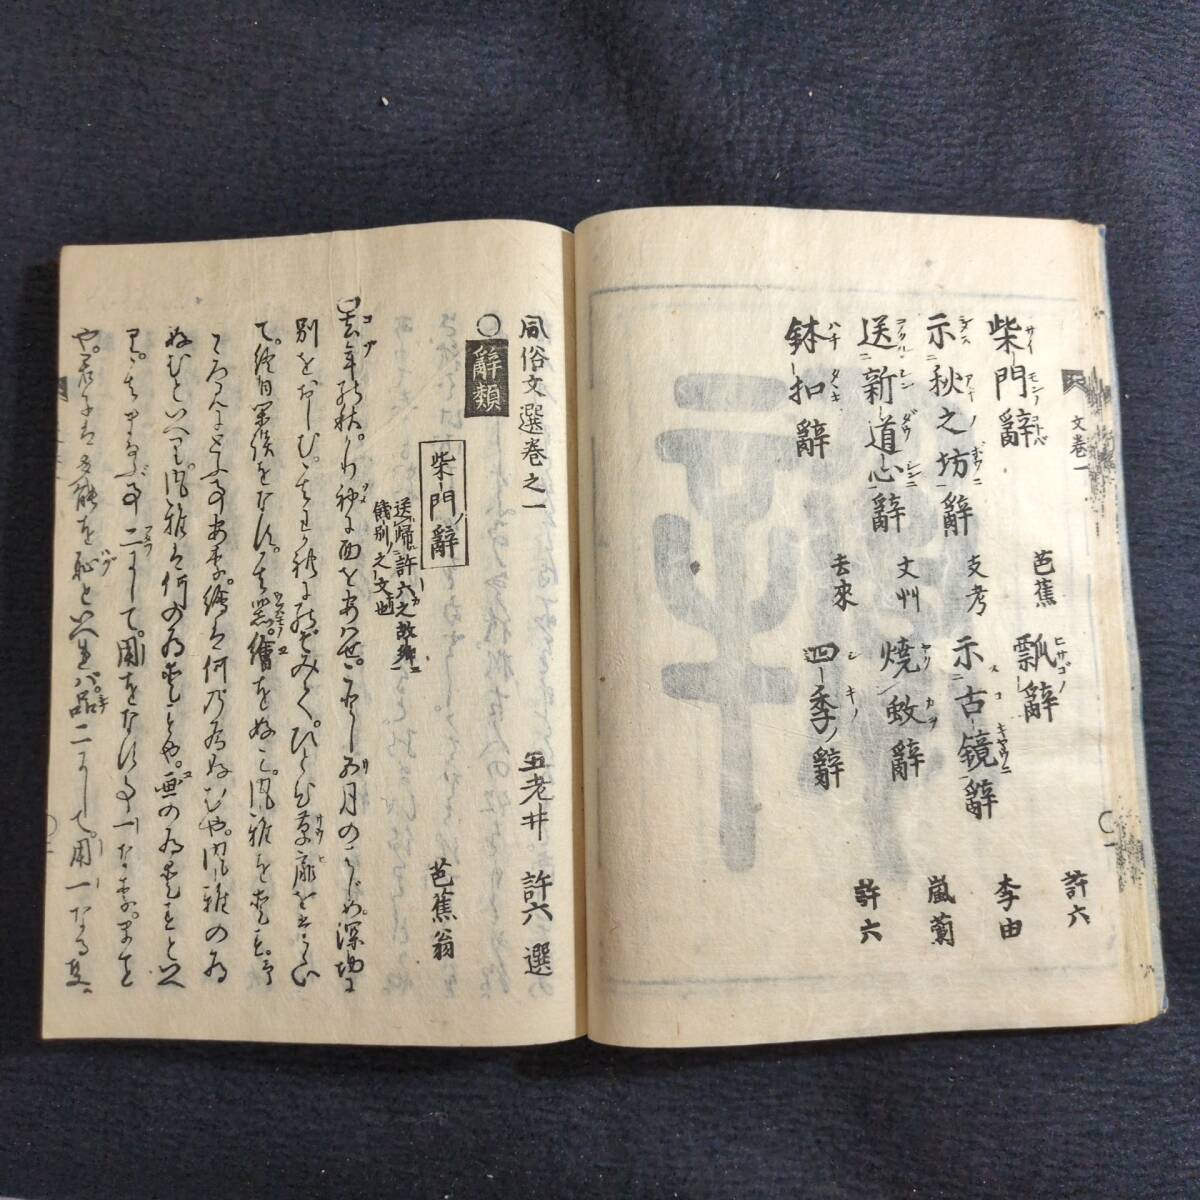 文卷一
柴門辭 芭蕉
瓢辭 許六
示秋之坊辭 支考
示古鏡辭 李由
送新道心辭 丈艸
焼蚊辭 嵐蘭
鉢扣辭 去來
四季ノ辭 許六
風俗文選巻之一 五老井 許六 選
○辭類
柴門ノ辭 芭蕉翁
送歸許六之故郷ニ
餞別ノ之文也
○去年の秋。かりそめに面をあはせ。ことし五月のはじめ。深切に
別をおしむ。其わかれにのぞみて。ひとひ草扉をたゝい
て。終日閑談をなす。其器。繪をこのみ。風雅を愛す。予
こゝろみにとふ事あり。繪は何の為このむや。風雅の為
このむといへり。風雅は何の為愛すや。画の為愛すといへ
り。其まなぶ事二にして。用をなす事一なり。まこと
や。君子は多能を恥といへれば。品二にして。用一なる事。